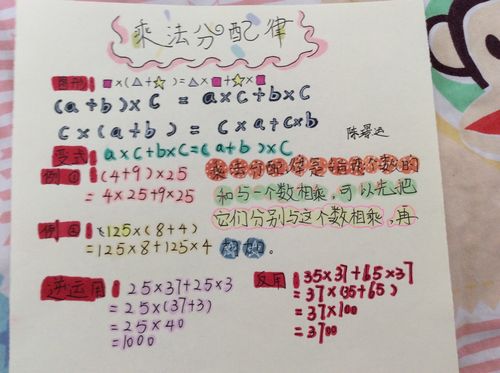 乘法分配律
图形 ■×(△+☆)=△×■+☆×■
(a+b)×c = a×c+b×c
c×(a+b) = c×a+c×b
陈璟达
变式 a×c+b×c=(a+b)×c
例① (4+9)×25
= 4×25+9×25
乘法分配律是指两个数的
和与一个数相乘,可以先把
它们分别与这个数相乘,再
相加。
例② 125×(8+4)
=125×8+125×4
逆运用 25×37+25×3
=25×(37+3)
=25×40
=1000
反用 35×37+65×37
=37×(35+65)
=37×100
=3700